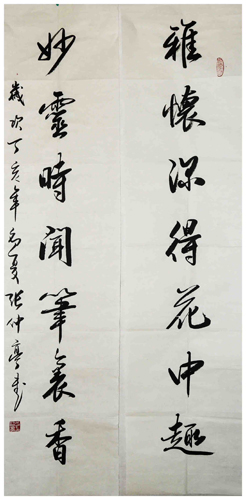 雅懷深得花中趣
妙靈時聞筆裏香
歲次丁亥年初夏張仲亭書